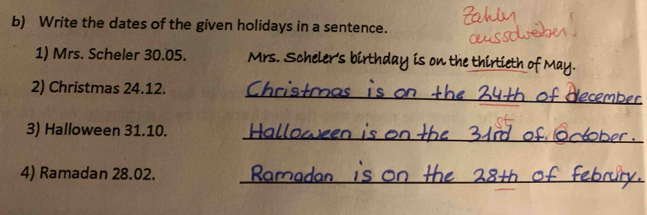 b) Write the dates of the given holidays in a sentence.
Zahlen
ausschreiben!
1) Mrs. Scheler 30.05. Mrs. Scheler's birthday is on the thirtieth of May.
2) Christmas 24.12. Christmas is on the 24th of december
3) Halloween 31.10. Halloween is on the 31rd of October.
st
4) Ramadan 28.02. Ramadan is on the 28th of februry.